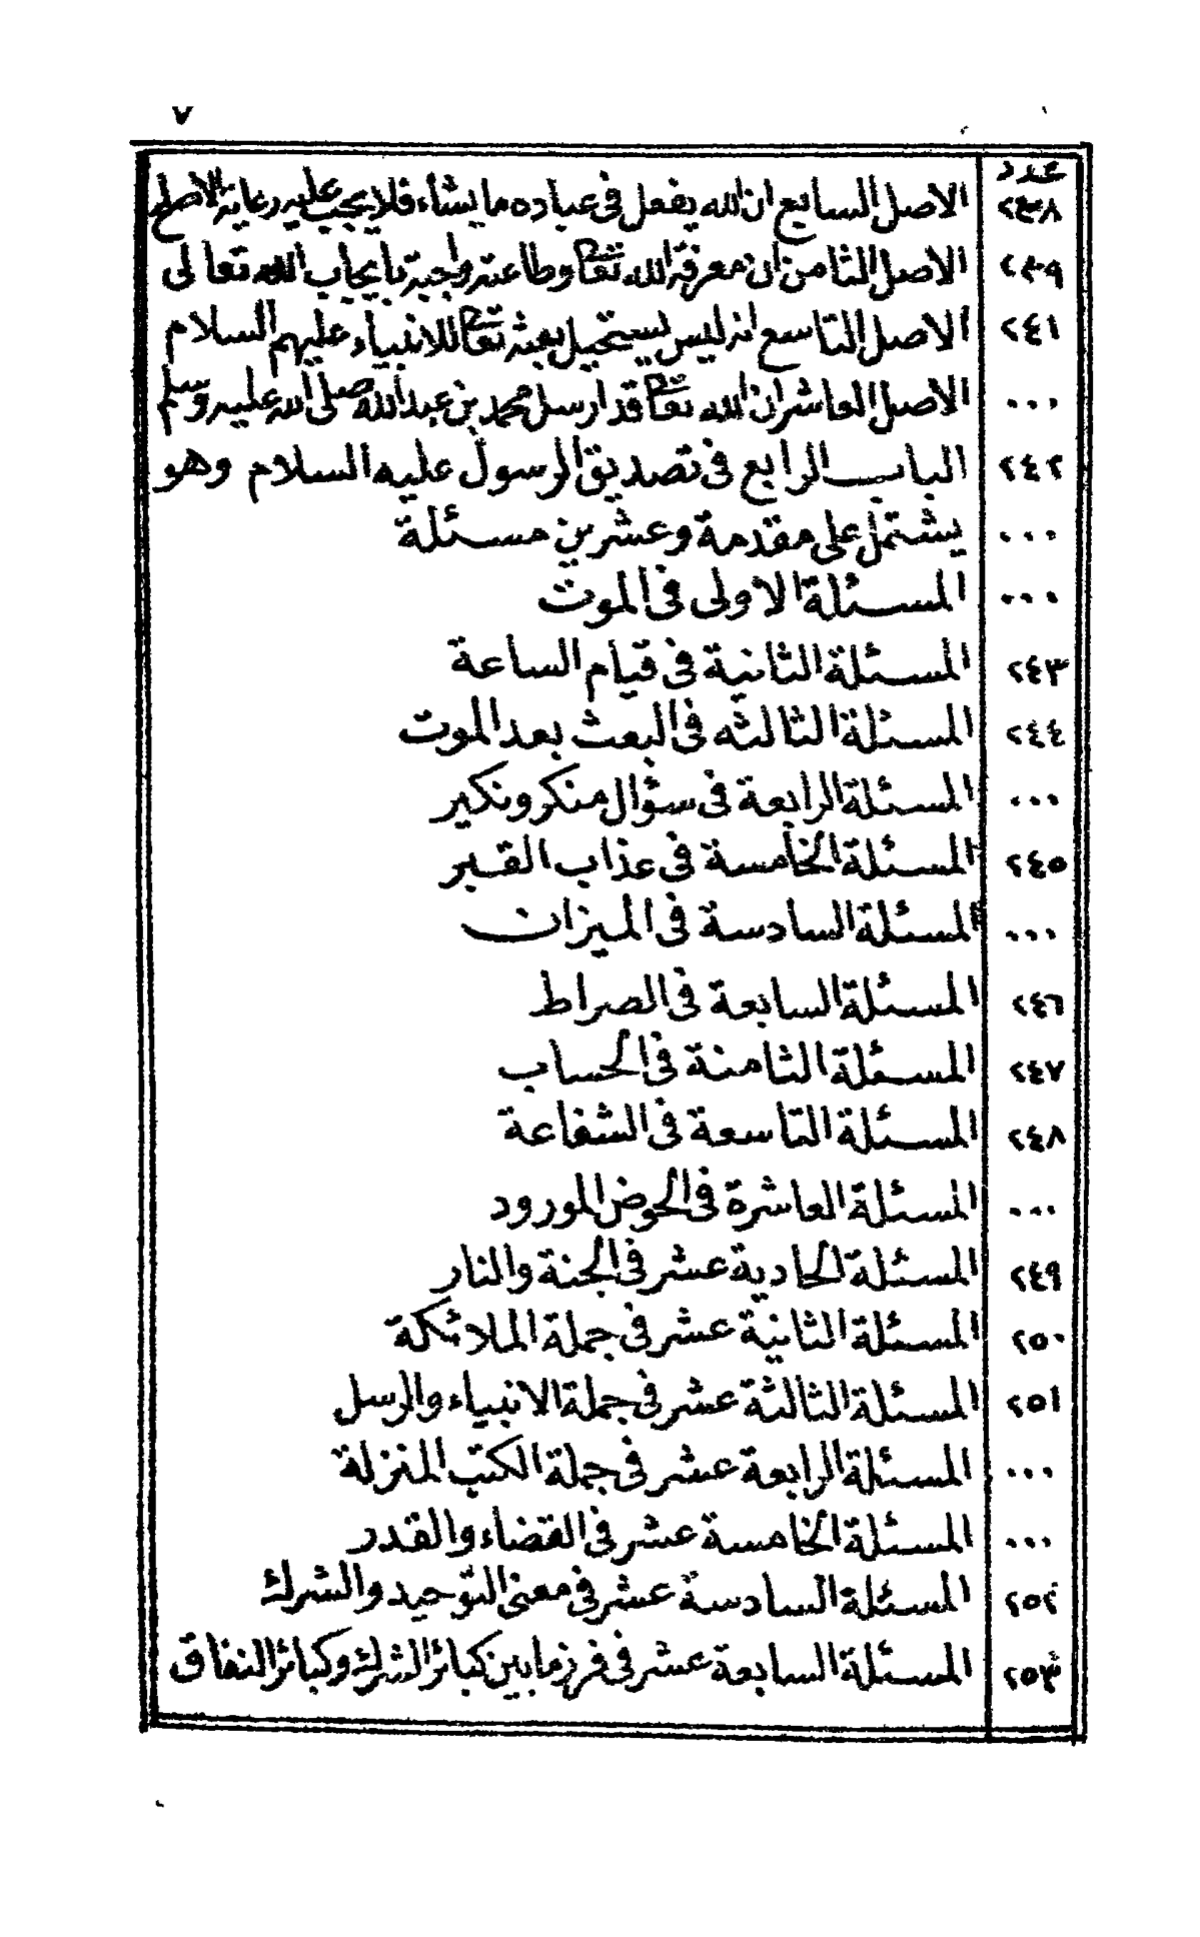 ٧
عدد
٢٣٨ الاصل السابع ان الله يفعل فى عباده ما يشاء فلا يجب عليه رعاية الاصلح
٢٣٩ الاصل الثامن ان معرفة الله تعالى وطاعته واجبة بايجاب الله تعالى
٢٤١ الاصل التاسع انه ليس يستحيل بعثه تعالى للانبياء عليهم السلام
... الاصل العاشر ان الله تعالى قد ارسل محمد بن عبد الله صلى الله عليه وسلم
٢٤٢ الباب الرابع فى تصديق الرسول عليه السلام وهو
... يشتمل على مقدمة وعشرين مسئلة
... المسئلة الاولى فى الموت
٢٤٣ المسئلة الثانية فى قيام الساعة
٢٤٤ المسئلة الثالثه فى البعث بعد الموت
... المسئلة الرابعة فى سؤال منكر ونكير
٢٤٥ المسئلة الخامسة فى عذاب القبر
... المسئلة السادسة فى الميزان
٢٤٦ المسئلة السابعة فى الصراط
٢٤٧ المسئلة الثامنة فى الحساب
٢٤٨ المسئلة التاسعة فى الشفاعة
... المسئلة العاشرة فى الحوض المورود
٢٤٩ المسئلة الحادية عشر فى الجنة والنار
٢٥٠ المسئلة الثانية عشر فى جملة الملائكة
٢٥١ المسئلة الثالثة عشر فى جملة الانبياء والرسل
... المسئلة الرابعة عشر فى جملة الكتب المنزلة
... المسئلة الخامسة عشر فى القضاء والقدر
٢٥٢ المسئلة السادسة عشر فى معنى التوحيد والشرك
٢٥٣ المسئلة السابعة عشر فى فرز ما بين كبائر الشرك وكبائر النفاق